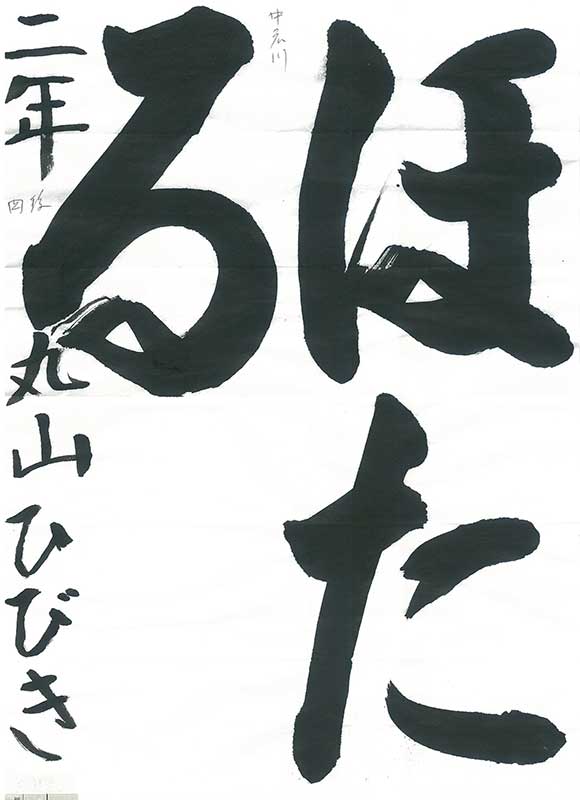 ほた
る
二年
丸山ひびき
四段